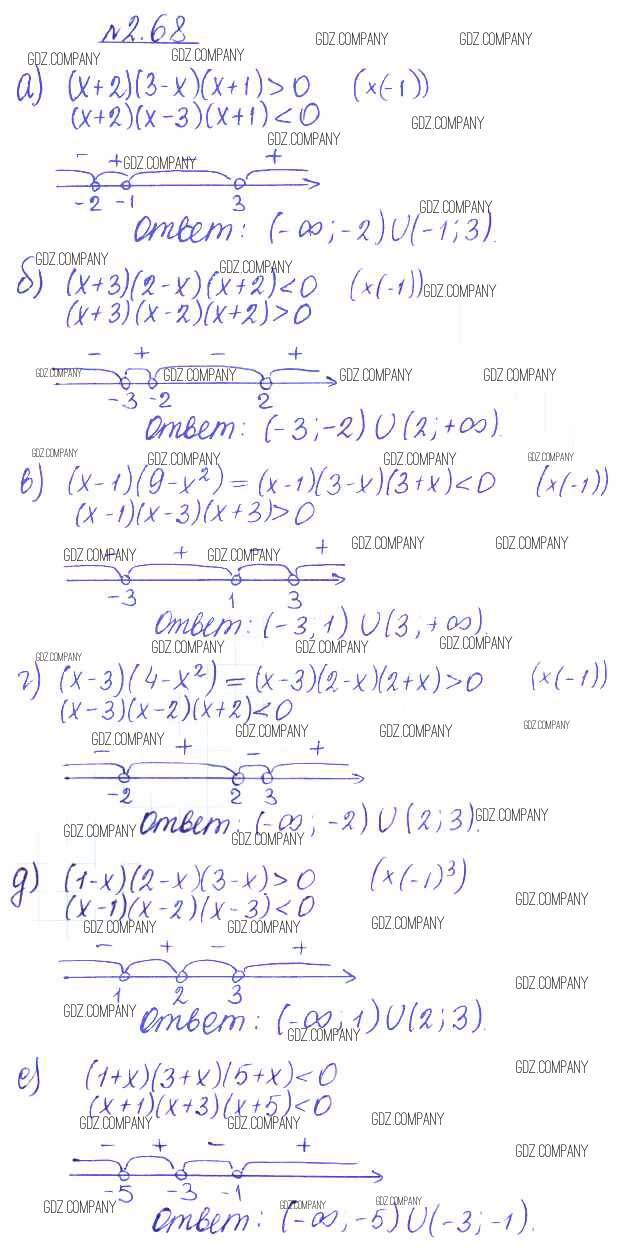 №2.68
а) (x+2)(3-x)(x+1)>0 (x(-1))
(x+2)(x-3)(x+1)<0
- + - +
-2 -1 3
Ответ: (-∞;-2)∪(-1;3).
б) (x+3)(2-x)(x+2)<0 (x(-1))
(x+3)(x-2)(x+2)>0
- + - +
-3 -2 2
Ответ: (-3;-2)∪(2;+∞).
в) (x-1)(9-x²)=(x-1)(3-x)(3+x)<0 (x(-1))
(x-1)(x-3)(x+3)>0
- + - +
-3 1 3
Ответ: (-3,1)∪(3,+∞).
г) (x-3)(4-x²)=(x-3)(2-x)(2+x)>0 (x(-1))
(x-3)(x-2)(x+2)<0
- + - +
-2 2 3
Ответ: (-∞;-2)∪(2;3).
д) (1-x)(2-x)(3-x)>0 (x(-1)³)
(x-1)(x-2)(x-3)<0
- + - +
1 2 3
Ответ: (-∞;1)∪(2;3).
е) (1+x)(3+x)(5+x)<0
(x+1)(x+3)(x+5)<0
- + - +
-5 -3 -1
Ответ: (-∞,-5)∪(-3;-1).
GDZ.COMPANY